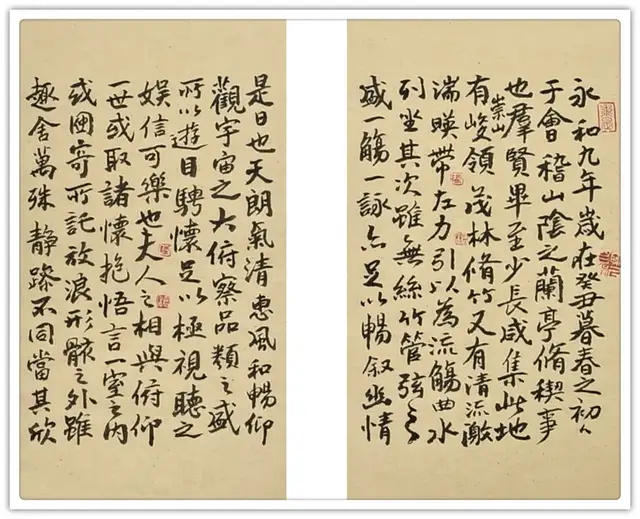 永和九年歲在癸丑暮春之初
于會稽山陰之蘭亭脩稧事
也羣賢畢至少長咸集此地
有崇山峻領茂林脩竹又有清流激
湍暎帶左右引以為流觴曲水
列坐其次雖無絲竹管弦之
盛一觴一詠亦足以暢叙幽情
是日也天朗氣清惠風和暢仰
觀宇宙之大俯察品類之盛
所以遊目騁懷足以極視聽之
娛信可樂也夫人之相與俯仰
一世或取諸懷抱悟言一室之内
或因寄所託放浪形骸之外雖
趣舍萬殊静躁不同當其欣